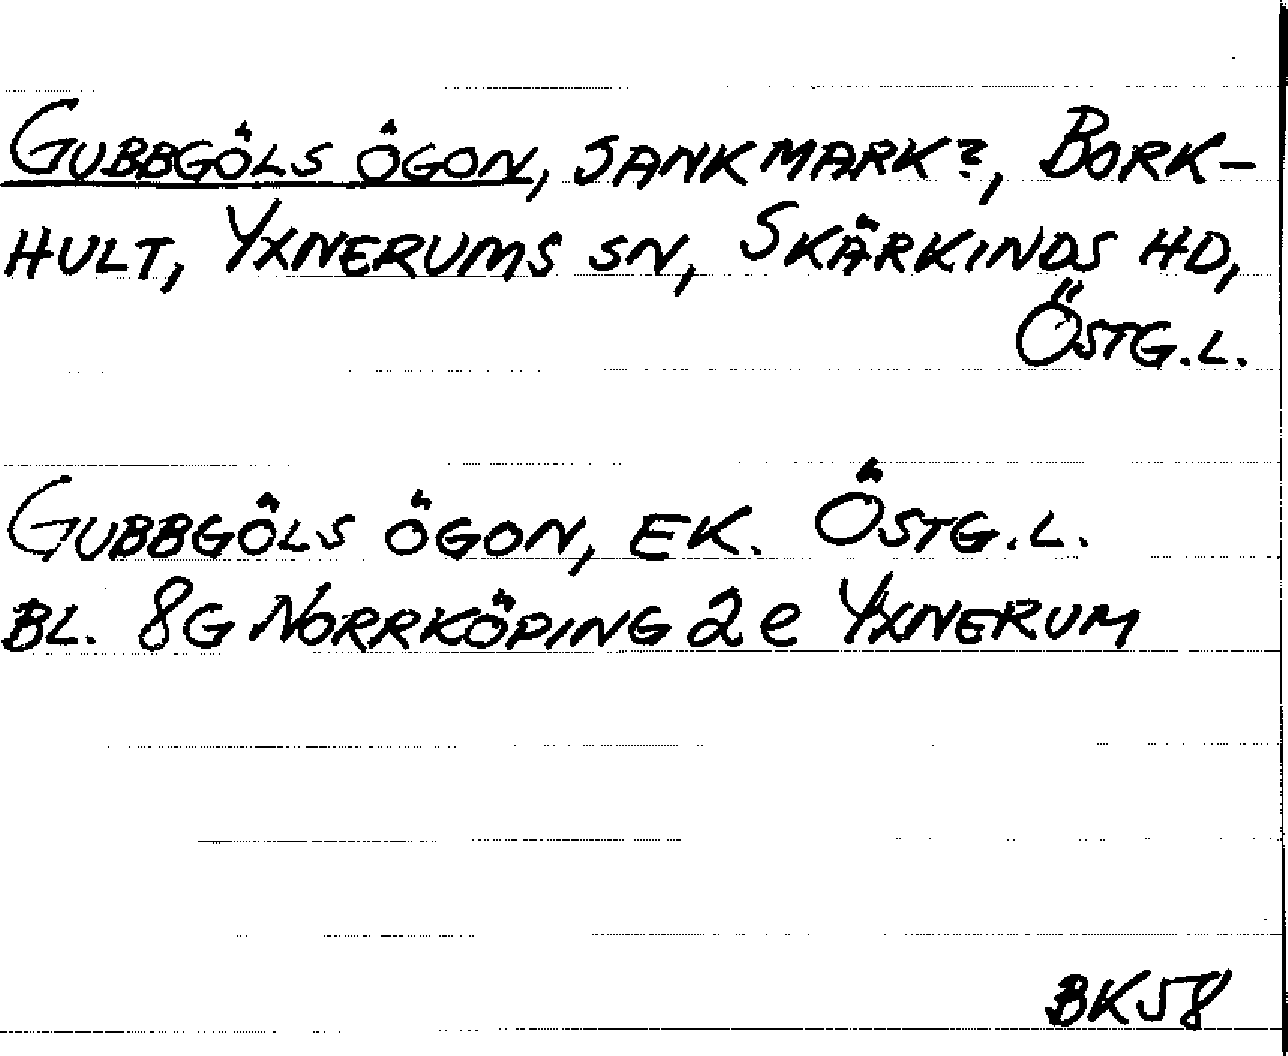 GUBBGÖLS ÖGON, SANKMARK?, BORK-
HULT, YXNERUMS SN, SKÄRKINDS HD,
ÖSTG.L.
GUBBGÖLS ÖGON, EK. ÖSTG.L.
BL. 8G NORRKÖPING 2e YXNERUM
BK58